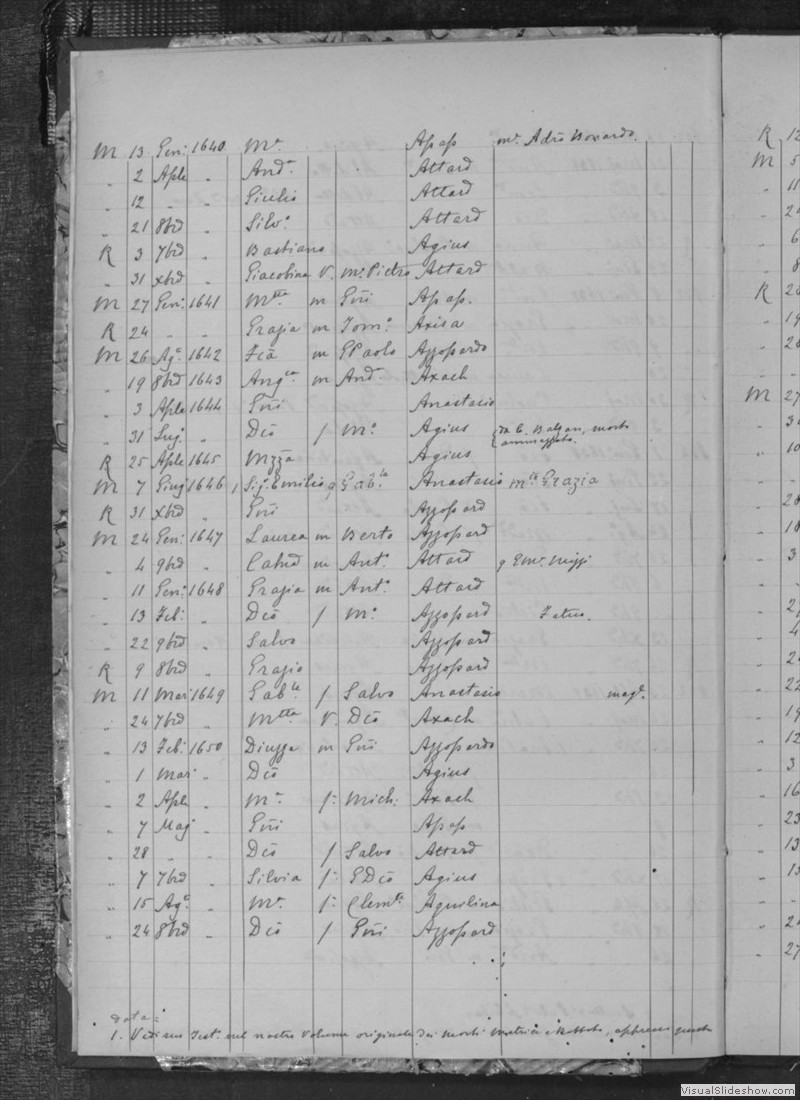 M 13 Gen: 1640 Mª Apap mº Adrō Bonardo.
„ 2 Aple „ Andª Attard
„ 12 „ „ Giulio Attard
„ 21 8brd „ Silvº Attard
R 3 7brd „ Bastiano Agius
„ 31 xbrd „ Giacobina V. mº Pietro Attard
M 27 Gen: 1641 Mtta m Giñi Apap.
R 24 „ „ Grazia m Tomº Axisa
M 26 Agº 1642 Fcā m GPaolo Azzopardo
„ 19 8brd 1643 Angca m Andª Axach
„ 3 Aple 1644 Giñi Anastasio
„ 31 Lug. „ Dcō / Mº Agius morto ammazzato.
R 25 Aple 1645 Vnzzā Agius
M 7 Giug 1646 1 Sigr Emilio q Gable Anastasio mª Grazia
R 31 xbrd „ Giñi Azzopard
M 24 Gen: 1647 Laurea m Berto Azzopard
„ 4 9brd „ Catnd m Antº Attard q
„ 11 Gen: 1648 Grazia m Antº Attard
„ 13 Feb: „ Dcō / Mº Azzopard Fetus.
„ 22 9brd „ Salvo Azzopard
R 9 8brd „ Grazio Azzopard
M 11 Mar: 1649 Gable / Salvo Anastasio magr.
„ 24 7brd „ Mtta V. Dcō Axach
„ 13 Feb: 1650 Diuzza m Giñi Azzopardo
„ 1 Mar: „ Dcō Agius
„ 2 Aple „ Mª /: Mich: Axach
„ 7 Mag „ Giñi Apap
„ 28 „ „ Dcō / Salvo Attard
„ 7 7brd „ Silvia /: GDcō Agius
„ 15 Agº „ Mª /: Clemte Aquilina
„ 24 8brd „ Dcō / Giñi Azzopard
Nota:
1. Vedi suo Test. nel nostro Volume originale dei morti
R 12
M 5
„ 11
6
8
R 28
„ 19
„ 28
M 27
„ 10
„ 28
„ 18
„ 3
4
„ 22
„ 19
„ 12
„ 3
„ 16
„ 23
„ 13
„ 27
VisualSlideshow.com